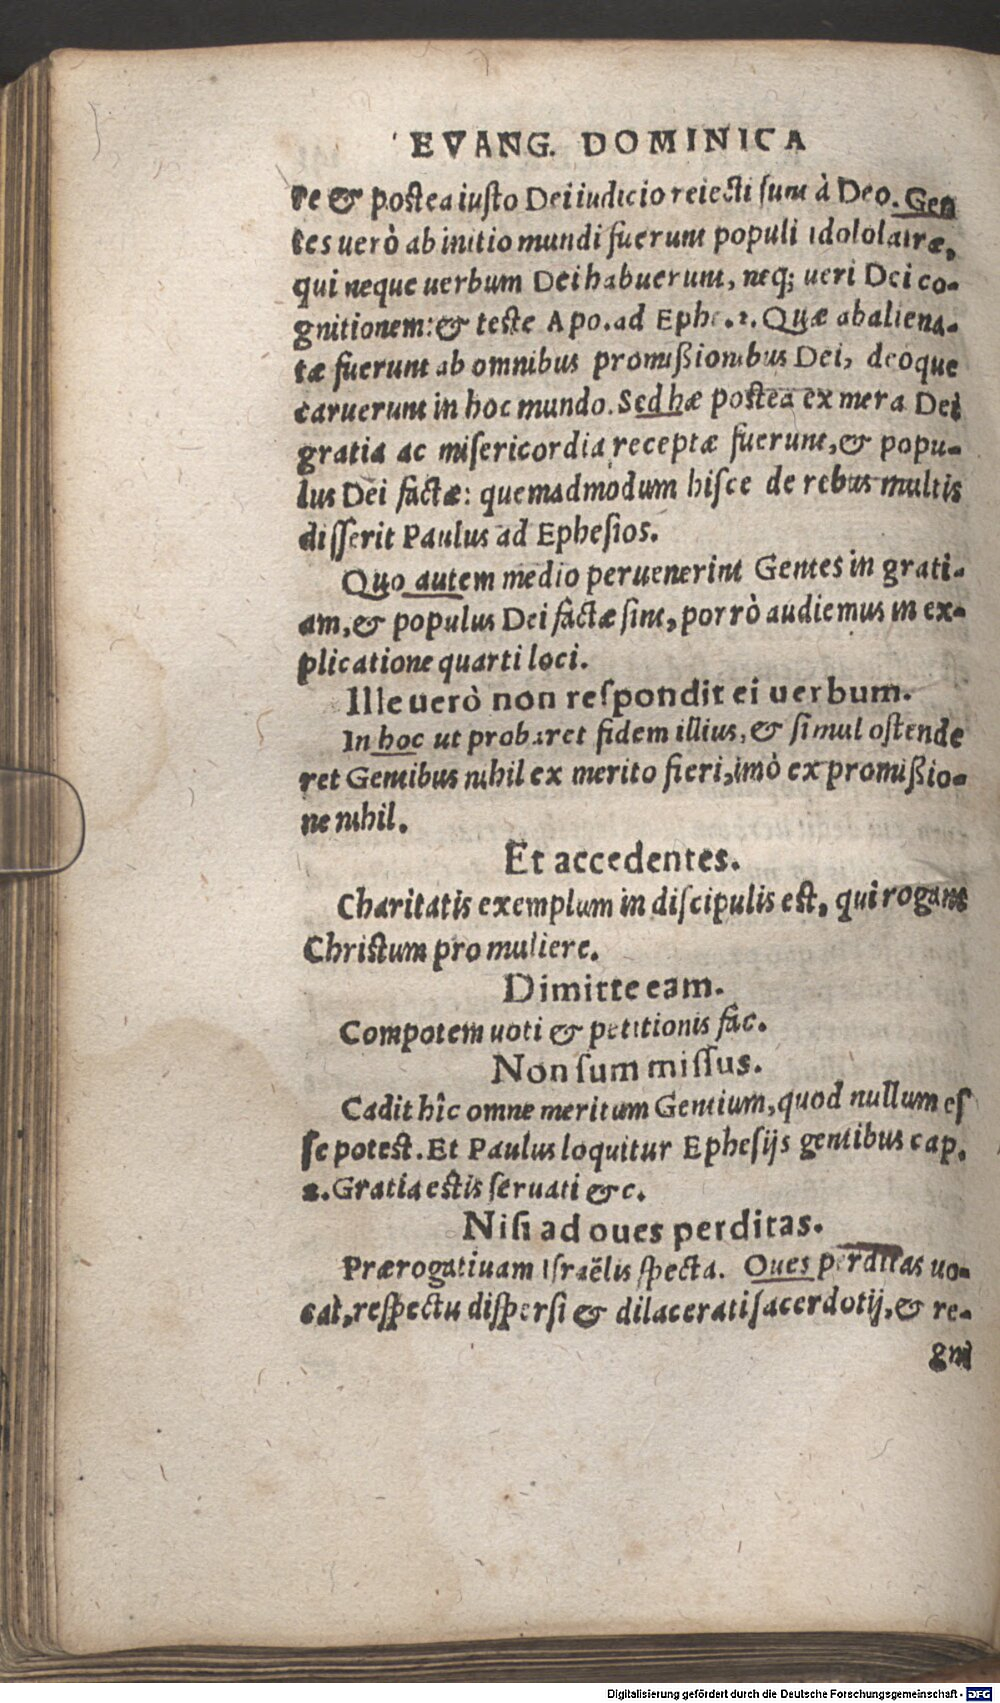 EVANG. DOMINICA
re & postea iusto Dei iudicio reiecti sunt à Deo. Gen
tes uerò ab initio mundi fuerunt populi idololatræ,
qui neque uerbum Dei habuerunt, neq; ueri Dei co-
gnitionem: & teste Apo. ad Ephe. 2. Quæ abaliena-
tæ fuerunt ab omnibus promißionibus Dei, deoque
caruerunt in hoc mundo. Sed hæ postea ex mera Dei
gratia ac misericordia receptæ fuerunt, & popu-
lus Dei factæ: quemadmodum hisce de rebus multis
disserit Paulus ad Ephesios.
Quo autem medio peruenerint Gentes in grati-
am, & populus Dei fâctæ sint, porrò audiemus in ex-
plicatione quarti loci.
Ille uerò non respondit ei uerbum.
In hoc ut probaret fidem illius, & simul ostende
ret Gentibus nihil ex merito fieri, imò ex promißio-
ne nihil.
Et accedentes.
Charitatis exemplum in discipulis est, qui rogant
Christum pro muliere.
Dimitte eam.
Compotem uoti & petitionis fâc.
Non sum missus.
Cadit hîc omne meritum Gentium, quod nullum es
se potest. Et Paulus loquitur Ephesijs gentibus cap.
2. Gratia estis seruati &c.
Nisi ad oues perditas.
Prærogatiuam Israëlis specta. Oues perditas uo-
cat, respectu dispersi & dilacerati sacerdotij, & re-
gni
Digitalisierung gefördert durch die Deutsche Forschungsgemeinschaft - DFG